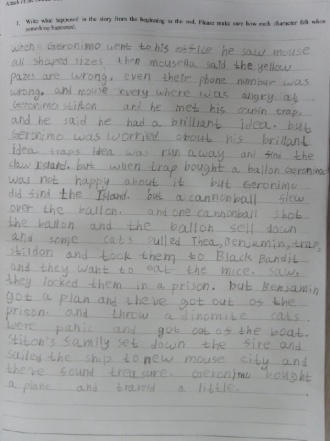 1. Write what happened in the story from the beginning to the end. Please make sure how each character felt when
something happened.
when Geronimo went to his office he saw mouse
all shaped sizes then mousella said the yellow
pazes are wrong. even there phone number was
wrong. and mouse every where was angry at
Geronimo stilton and he met his cousin trap.
and he said he had a brilliant idea. but
Geronimo was worried about his brillant
Idea traps Idea was run away and find the
claw Island. but when trap bought a ballon Geronimo
was not happy about it but Geronimo
did find the Island. but a cannonball flew
over the ballon. and one cannonball shot
the ballon and the ballon fell down
and some cats pulled Thea, Benjamin, trap,
stildon and took them to Black Bandit
and they want to eat the mice. saw,
they locked them in a prison. but Benjamin
got a plan and theve got out of the
prison. and throw a dinomite cats.
were panic and got out of the boat.
Stilton's family set down the fire and
sailed the ship to new mouse city and
theve found treasure. Geronimo bought
a plane and traveld a little.